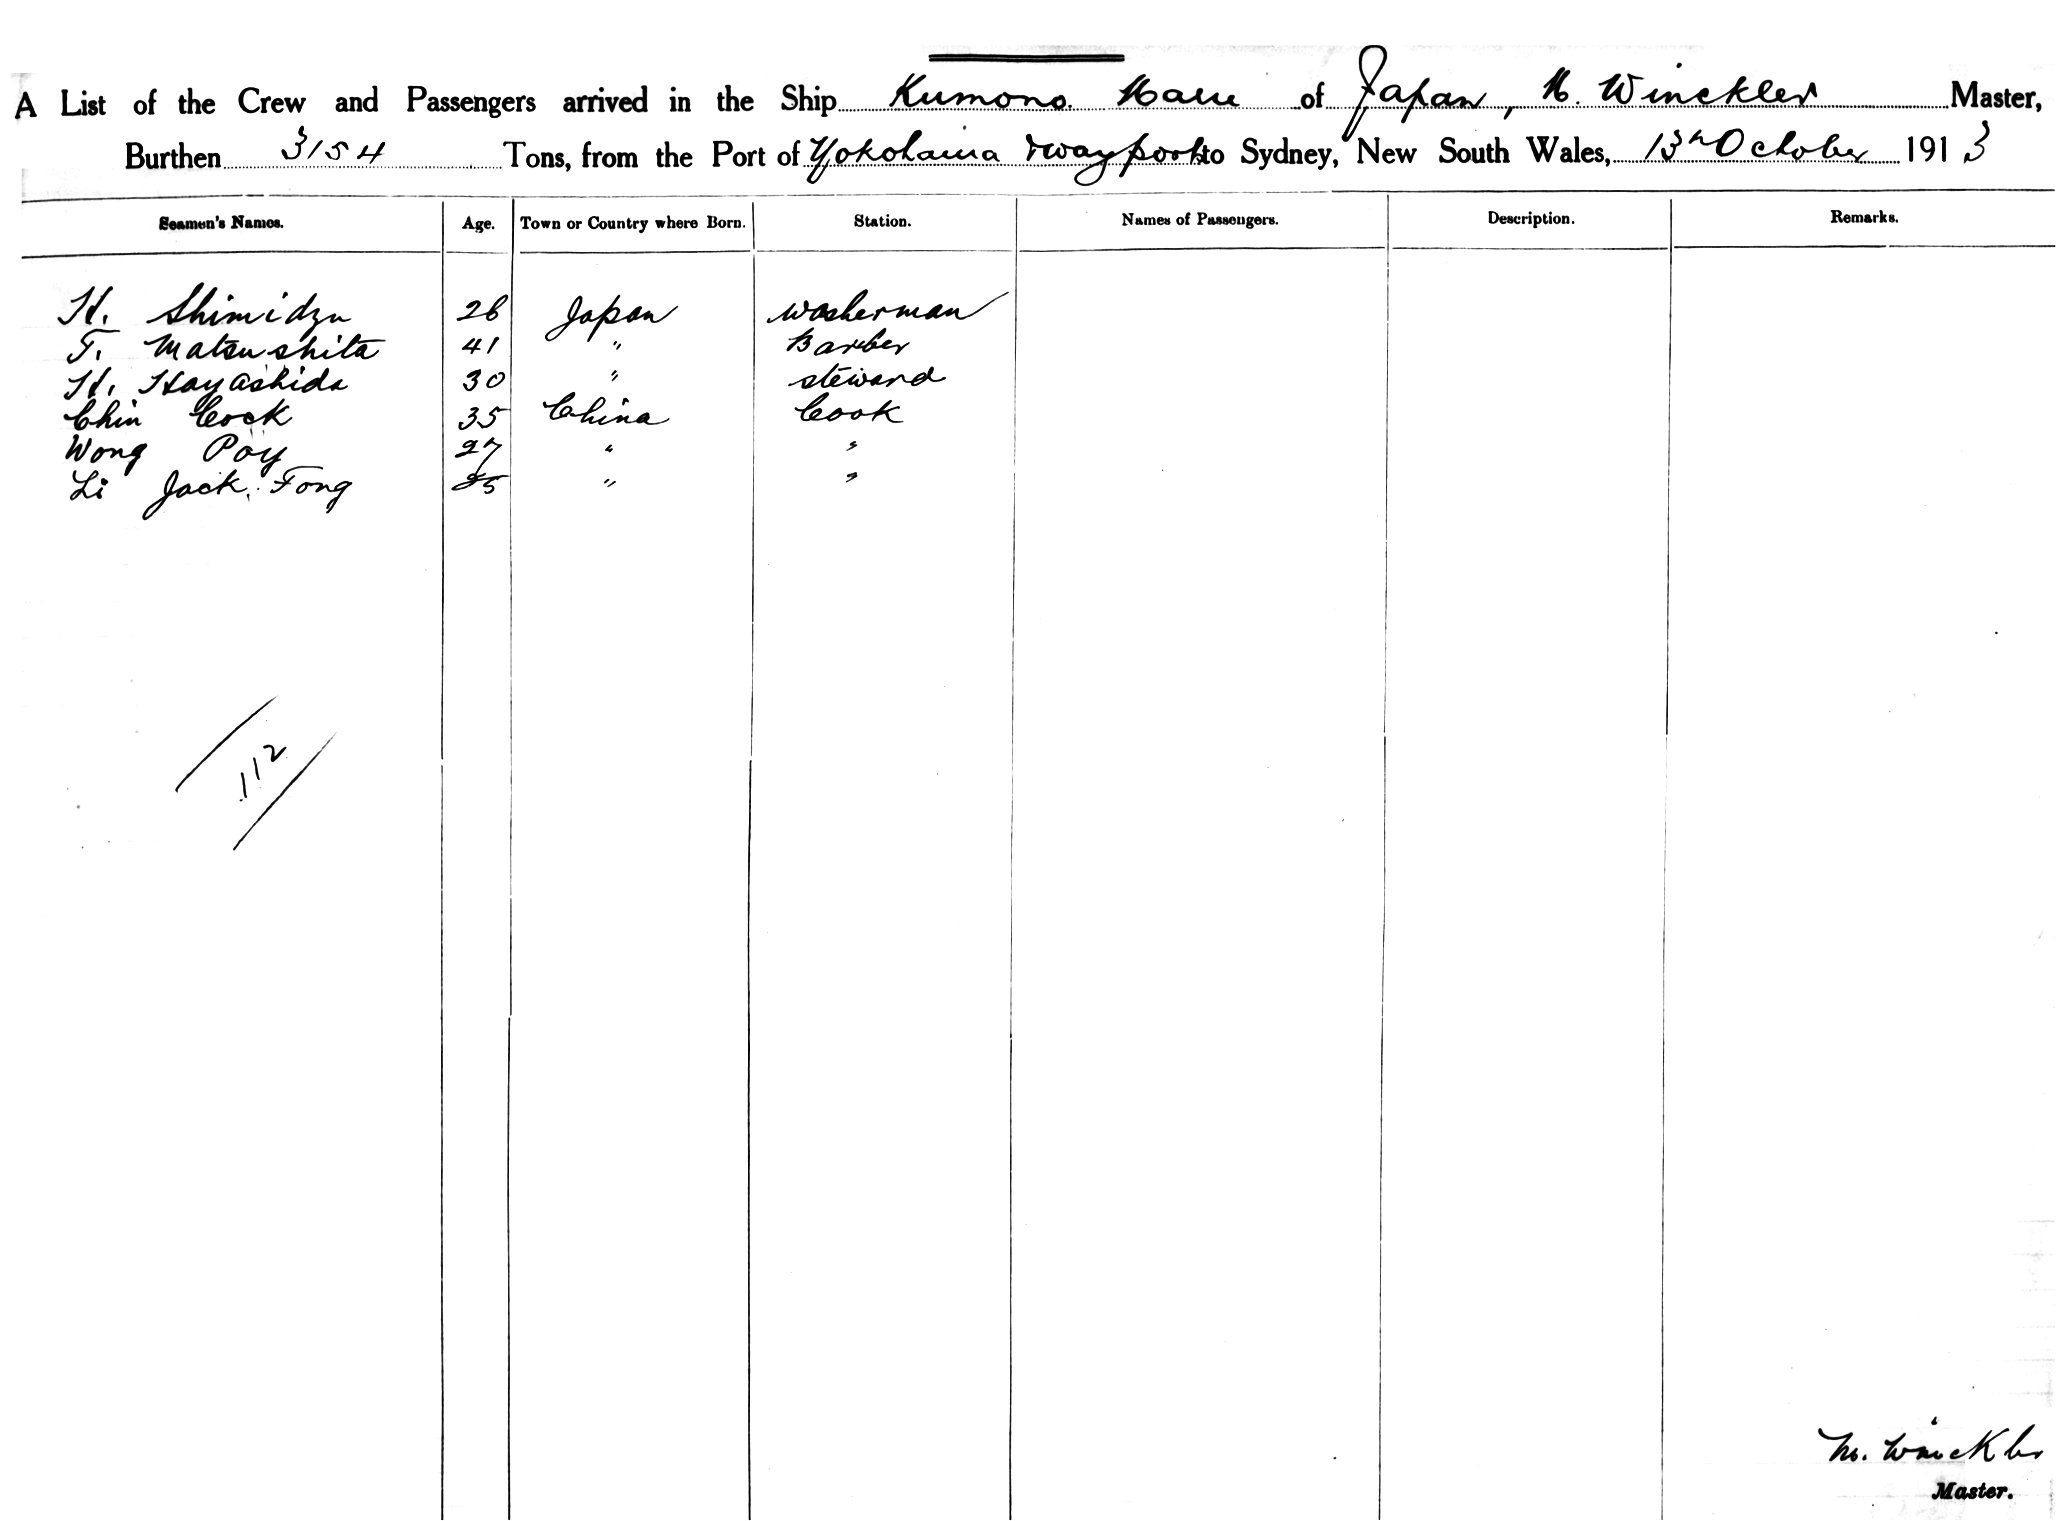 A List of the Crew and Passengers arrived in the Ship Kumono Maru of Japan, M. Winckler Master,
Burthen 3154 Tons, from the Port of Yokohama & way ports to Sydney, New South Wales, 13th October 1913
Seamen's Names. Age. Town or Country where Born. Station. Names of Passengers. Description. Remarks.
H. Shimidzu 26 Japan Washerman
T. Matsushita 41 " Barber
H. Hayashida 30 " Steward
Chin Cock 35 China Cook
Wong Poy 27 " "
Li Jack Fong 25 " "
112
M. Winckler
Master.